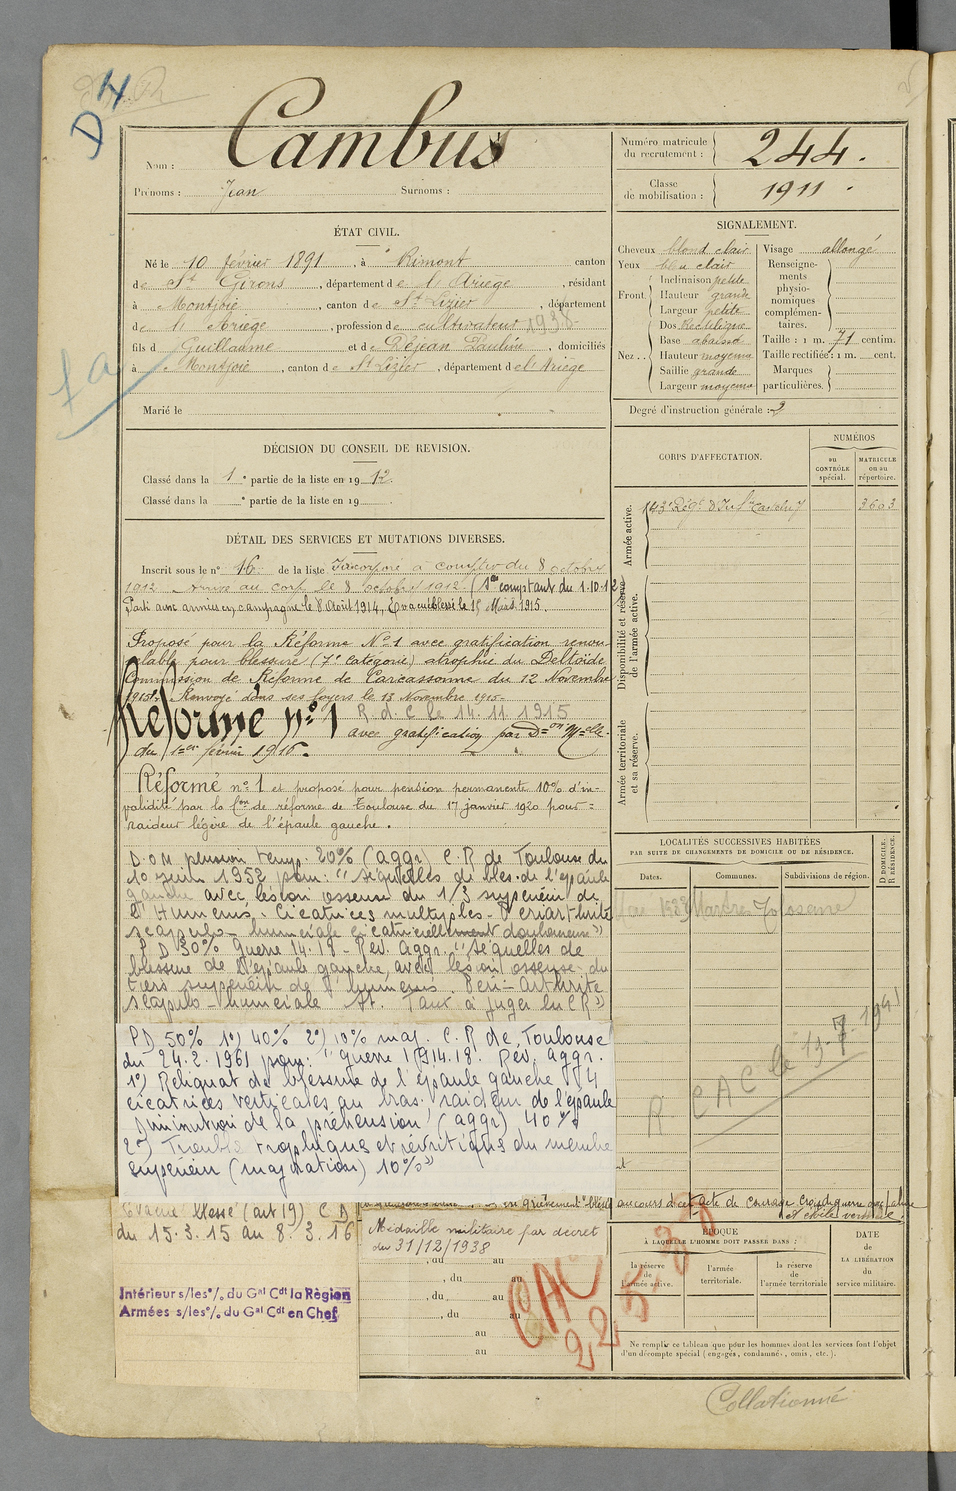 D 4
Nom : Cambus
Prénoms : Jean Surnoms :
Numéro matricule du recrutement : 244.
Classe de mobilisation : 1911
ÉTAT CIVIL.
Né le 10 février 1891, à Rimont canton
de St Girons, département de l'Ariège, résidant
à Montjoie, canton de St Lizier, département
de l'Ariège, profession de cultivateur 1938
fils de Guillaume et de Dejean Pauline, domiciliés
à Montjoie, canton de St Lizier, département de l'Ariège
Marié le
fa
SIGNALEMENT.
Cheveux blond clair
Yeux bleu clair
Front. Inclinaison petite
Hauteur grande
Largeur petite
Nez.. Dos Rectiligne
Base abaissé
Hauteur moyenne
Saillie grande
Largeur moyenne
Visage allongé
Renseignements physionomiques complémentaires.
Taille : 1 m. 71 centim.
Taille rectifiée : 1 m. cent.
Marques particulières.
Degré d'instruction générale : 3
DÉCISION DU CONSEIL DE REVISION.
Classé dans la 1e partie de la liste en 1912.
Classé dans la e partie de la liste en 19
CORPS D'AFFECTATION.
NUMÉROS
au CONTRÔLE spécial.
MATRICULE ou au répertoire.
Armée active.
143e Régt d'Inf
3603
Disponibilité et réserve de l'armée active.
Armée territoriale et sa réserve.
DÉTAIL DES SERVICES ET MUTATIONS DIVERSES.
Inscrit sous le n° 16 de la liste Incorporé à compter du 8 octobre
1912. Arrivé au corps le 8 octobre 1912 (Sce comptant du 1.10.12
Parti aux armées en campagne le 8 Août 1914, Evacué blessé le 15 Mars 1915.
Proposé pour la Réforme N° 1 avec gratification renou-
velable pour blessure (7e catégorie) atrophie du Deltoïde
Commission de Réforme de Carcassonne du 12 Novembre
1915. Renvoyé dans ses foyers le 13 Novembre 1915.
Réformé n° 1 R.d.C le 14.11.1915
avec gratification par Don Melle
du 1er février 1916.
Réformé n° 1 et proposé pour pension permanente 10% d'in-
validité par la Con de réforme de Toulouse du 17 janvier 1920 pour =
raideur légère de l'épaule gauche.
pension temp. 20% (aggr) C.R de Toulouse du
10 juin 1952 pour : "séquelles de bles. de l'épaule
gauche avec lésion osseuse du 1/3 supérieur de
l'Humérus. Cicatrices multiples. Périarthrite
scapulo-humérale cicatriciellement douloureuse"
P D 30% Guerre 14.18 - Rev. aggr. "Séquelles de
blessure de l'épaule gauche, avec lésion osseuse du
tiers supérieur de l'humérus. Péri-Arthrite
scapulo-humérale Taux à juger la CR"
PD 50% 1°) 40% 2°) 10% maj. C.R de Toulouse
du 24.2.1961 pour : "guerre 1914.18. Rev. aggr.
1°) Reliquat de blessure de l'épaule gauche 4
cicatrices verticales au bras raideur de l'épaule
Diminution de la préhension (aggr) 40%
2°) Trouble trophiques et névritiques du membre
supérieur (majoration) 10%"
Evacué blessé (art 19) C D
du 15.3.15 au 8.3.16
Intérieur s/les °/o du Gal Cdt la Région
Armées s/les °/o du Gal Cdt en Chef
LOCALITÉS SUCCESSIVES HABITÉES
PAR SUITE DE CHANGEMENTS DE DOMICILE OU DE RÉSIDENCE.
Dates. Communes. Subdivisions de région. D DOMICILE. R RÉSIDENCE.
1933 Martres Tolosane
R
CAC le 19-7-1941
grièvement blessé au cours d'un acte de courage croix de guerre avec
Médaille militaire par décret
du 31/12/1938
, du au
, du au
, du au
, du au
au
au
CAC
22 5 39
ÉPOQUE
À LAQUELLE L'HOMME DOIT PASSER DANS :
la réserve de l'armée active.
l'armée territoriale.
la réserve de l'armée territoriale
DATE de LA LIBÉRATION du service militaire.
Ne remplir ce tableau que pour les hommes dont les services font l'objet
d'un décompte spécial (engagés, condamnés, omis, etc.).
Collationné